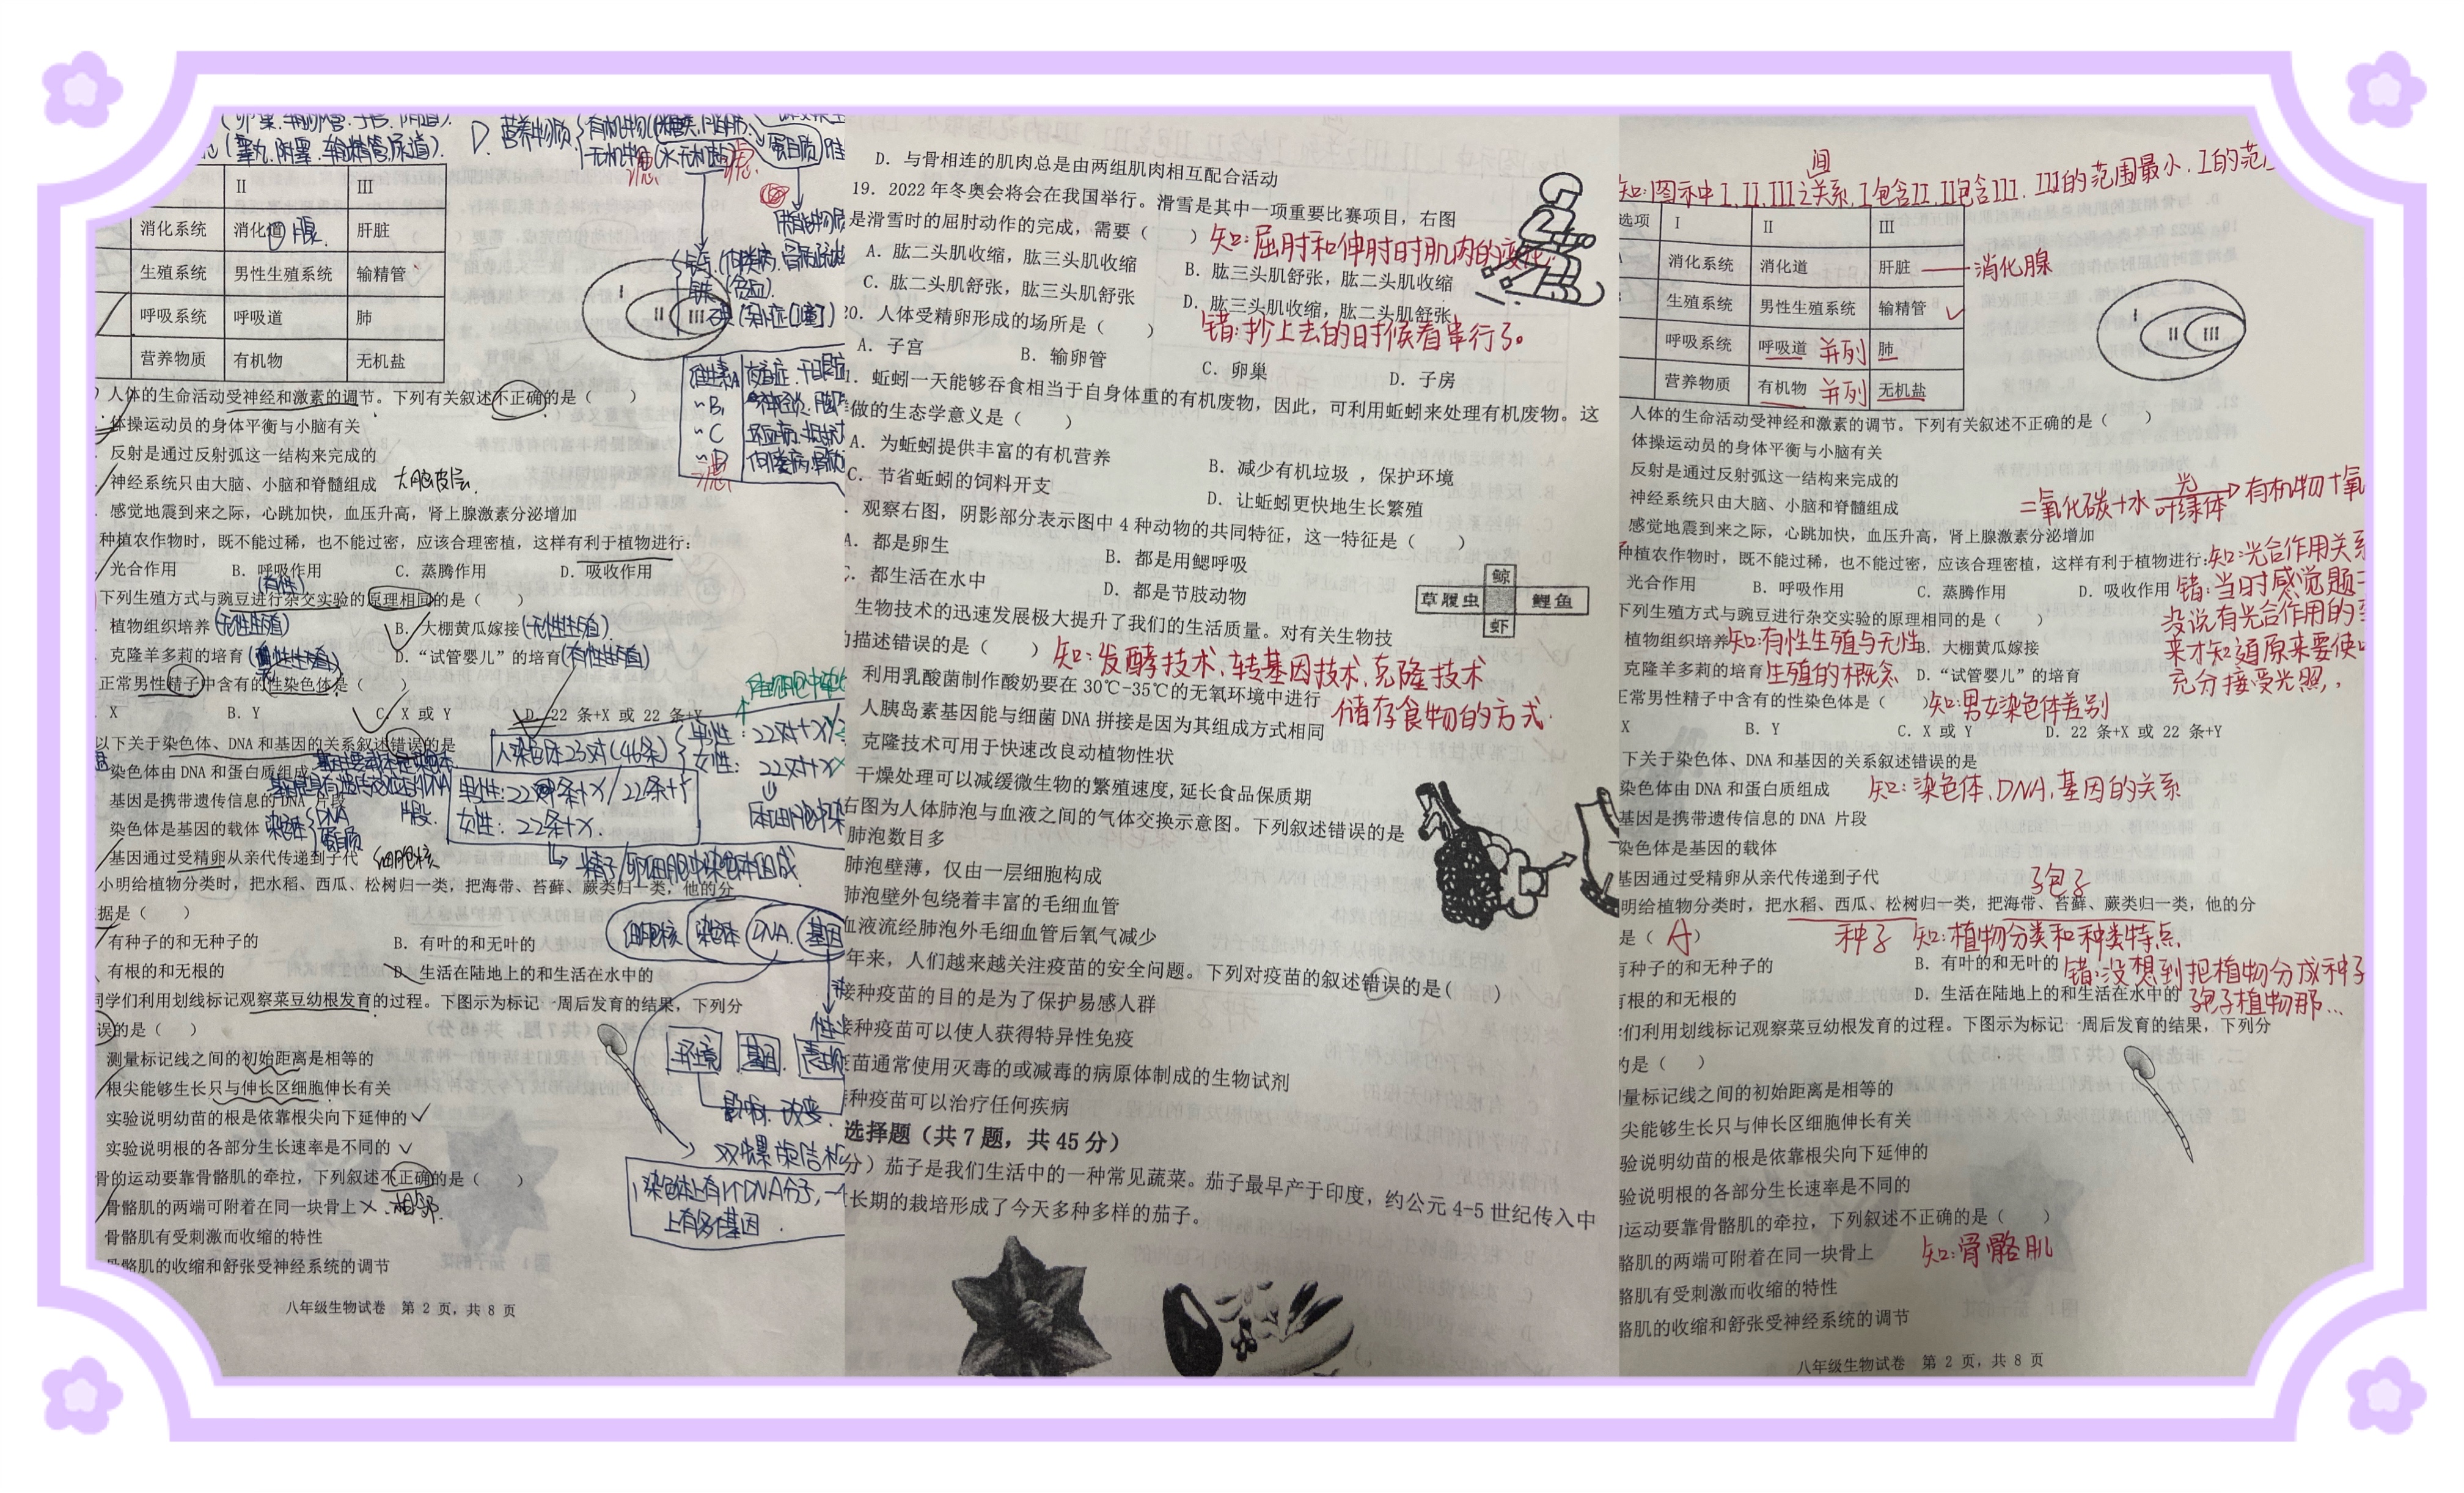 D. 营养物质
有机物(糖类
无机物(水 无机盐)
蛋白质
(睾丸.附睾.输精管.尿道).
II III
消化系统 消化道 腺. 肝脏
生殖系统 男性生殖系统 输精管
呼吸系统 呼吸道 肺
营养物质 有机物 无机盐
I II III
人体的生命活动受神经和激素的调节。下列有关叙述不正确的是（ ）
体操运动员的身体平衡与小脑有关
反射是通过反射弧这一结构来完成的
神经系统只由大脑、小脑和脊髓组成 大脑皮层.
感觉地震到来之际，心跳加快，血压升高，肾上腺激素分泌增加
种植农作物时，既不能过稀，也不能过密，应该合理密植，这样有利于植物进行：
光合作用 B. 呼吸作用 C. 蒸腾作用 D. 吸收作用
(有性)
下列生殖方式与豌豆进行杂交实验的原理相同的是（ ）
植物组织培养 (无性生殖) B. 大棚黄瓜嫁接 (无性生殖).
克隆羊多莉的培育 D. “试管婴儿”的培育 (有性生殖)
正常男性精子中含有的性染色体是（ ）
X B. Y C. X 或 Y D. 22 条+X 或 22 条+Y
以下关于染色体、DNA 和基因的关系叙述错误的是
人染色体23对(46条)
男性: 22对+XY
女性: 22对+X
染色体由 DNA 和蛋白质组成
基因是携带遗传信息的 DNA 片段 片段.
男性: 22条+X/22条+Y
女性: 22条+X.
染色体是基因的载体 染色体 DNA 蛋白质
基因通过受精卵从亲代传递到子代 细胞核
精子/卵细胞中染色体组成
小明给植物分类时，把水稻、西瓜、松树归一类，把海带、苔藓、蕨类归一类，他的分
据是（ ）
细胞核 染色体 DNA. 基因
有种子的和无种子的 B. 有叶的和无叶的
有根的和无根的 D. 生活在陆地上的和生活在水中的
同学们利用划线标记观察菜豆幼根发育的过程。下图示为标记一周后发育的结果，下列分
误的是（ ）
环境 基因.
测量标记线之间的初始距离是相等的
根尖能够生长只与伸长区细胞伸长有关
影响 改变
实验说明幼苗的根是依靠根尖向下延伸的
实验说明根的各部分生长速率是不同的
双螺旋结构
骨的运动要靠骨骼肌的牵拉，下列叙述不正确的是（ ）
骨骼肌的两端可附着在同一块骨上 X. 相邻.
1染色体上有1个DNA分子,一个
上有多个基因.
骨骼肌有受刺激而收缩的特性
骨骼肌的收缩和舒张受神经系统的调节
八年级生物试卷 第 2 页，共 8 页
D. 与骨相连的肌肉总是由两组肌肉相互配合活动
19. 2022 年冬奥会将会在我国举行。滑雪是其中一项重要比赛项目，右图
是滑雪时的屈肘动作的完成，需要（ ） 知:屈肘和伸肘时肌肉的变化.
A. 肱二头肌收缩，肱三头肌收缩 B. 肱三头肌舒张，肱二头肌收缩
C. 肱二头肌舒张，肱三头肌舒张 D. 肱三头肌收缩，肱二头肌舒张
20. 人体受精卵形成的场所是（ ） 错:抄上去的时候看串行了。
A. 子宫 B. 输卵管 C. 卵巢 D. 子房
1. 蚯蚓一天能够吞食相当于自身体重的有机废物，因此，可利用蚯蚓来处理有机废物。这
做的生态学意义是（ ）
A. 为蚯蚓提供丰富的有机营养 B. 减少有机垃圾 ，保护环境
C. 节省蚯蚓的饲料开支 D. 让蚯蚓更快地生长繁殖
观察右图，阴影部分表示图中 4 种动物的共同特征，这一特征是（ ）
A. 都是卵生 B. 都是用鳃呼吸
C. 都生活在水中 D. 都是节肢动物
鲸
草履虫 鲤鱼
虾
生物技术的迅速发展极大提升了我们的生活质量。对有关生物技
的描述错误的是（ ） 知:发酵技术.转基因技术.克隆技术
利用乳酸菌制作酸奶要在 30℃-35℃的无氧环境中进行 储存食物的方式.
人胰岛素基因能与细菌 DNA 拼接是因为其组成方式相同
克隆技术可用于快速改良动植物性状
干燥处理可以减缓微生物的繁殖速度,延长食品保质期
右图为人体肺泡与血液之间的气体交换示意图。下列叙述错误的是
肺泡数目多
肺泡壁薄，仅由一层细胞构成
肺泡壁外包绕着丰富的毛细血管
血液流经肺泡外毛细血管后氧气减少
年来，人们越来越关注疫苗的安全问题。下列对疫苗的叙述错误的是( )
接种疫苗的目的是为了保护易感人群
接种疫苗可以使人获得特异性免疫
疫苗通常使用灭毒的或减毒的病原体制成的生物试剂
接种疫苗可以治疗任何疾病
选择题（共 7 题，共 45 分）
分）茄子是我们生活中的一种常见蔬菜。茄子最早产于印度，约公元 4-5 世纪传入中
长期的栽培形成了今天多种多样的茄子。
间
知:图示中 I.II.III之关系.I包含II.II包含III.III的范围最小.I的范
选项 I II III
消化系统 消化道 肝脏 消化腺
生殖系统 男性生殖系统 输精管
呼吸系统 呼吸道 并列 肺
营养物质 有机物 并列 无机盐
I II III
人体的生命活动受神经和激素的调节。下列有关叙述不正确的是（ ）
体操运动员的身体平衡与小脑有关
反射是通过反射弧这一结构来完成的
神经系统只由大脑、小脑和脊髓组成
二氧化碳+水 光 叶绿体 有机物+氧
感觉地震到来之际，心跳加快，血压升高，肾上腺激素分泌增加
种植农作物时，既不能过稀，也不能过密，应该合理密植，这样有利于植物进行: 知:光合作用关系
光合作用 B. 呼吸作用 C. 蒸腾作用 D. 吸收作用 错:当时感觉题
没说有光合作用的
来才知道原来要使
充分接受光照.
下列生殖方式与豌豆进行杂交实验的原理相同的是（ ）
植物组织培养 知:有性生殖与无性 B. 大棚黄瓜嫁接
克隆羊多莉的培育 生殖的概念 D. “试管婴儿”的培育
正常男性精子中含有的性染色体是（ ） 知:男女染色体差别
X B. Y C. X 或 Y D. 22 条+X 或 22 条+Y
下关于染色体、DNA 和基因的关系叙述错误的是
染色体由 DNA 和蛋白质组成 知:染色体.DNA.基因的关系
基因是携带遗传信息的 DNA 片段
染色体是基因的载体
基因通过受精卵从亲代传递到子代 孢子
明给植物分类时，把水稻、西瓜、松树归一类，把海带、苔藓、蕨类归一类，他的分
是（ A ） 种子 知:植物分类和种类特点
有种子的和无种子的 B. 有叶的和无叶的 错:没想到把植物分成种子
有根的和无根的 D. 生活在陆地上的和生活在水中的 孢子植物那...
们利用划线标记观察菜豆幼根发育的过程。下图示为标记一周后发育的结果，下列分
的是（ ）
量标记线之间的初始距离是相等的
尖能够生长只与伸长区细胞伸长有关
验说明幼苗的根是依靠根尖向下延伸的
验说明根的各部分生长速率是不同的
运动要靠骨骼肌的牵拉，下列叙述不正确的是（ ）
骼肌的两端可附着在同一块骨上 知:骨骼肌
骼肌有受刺激而收缩的特性
骼肌的收缩和舒张受神经系统的调节
八年级生物试卷 第 2 页，共 8 页